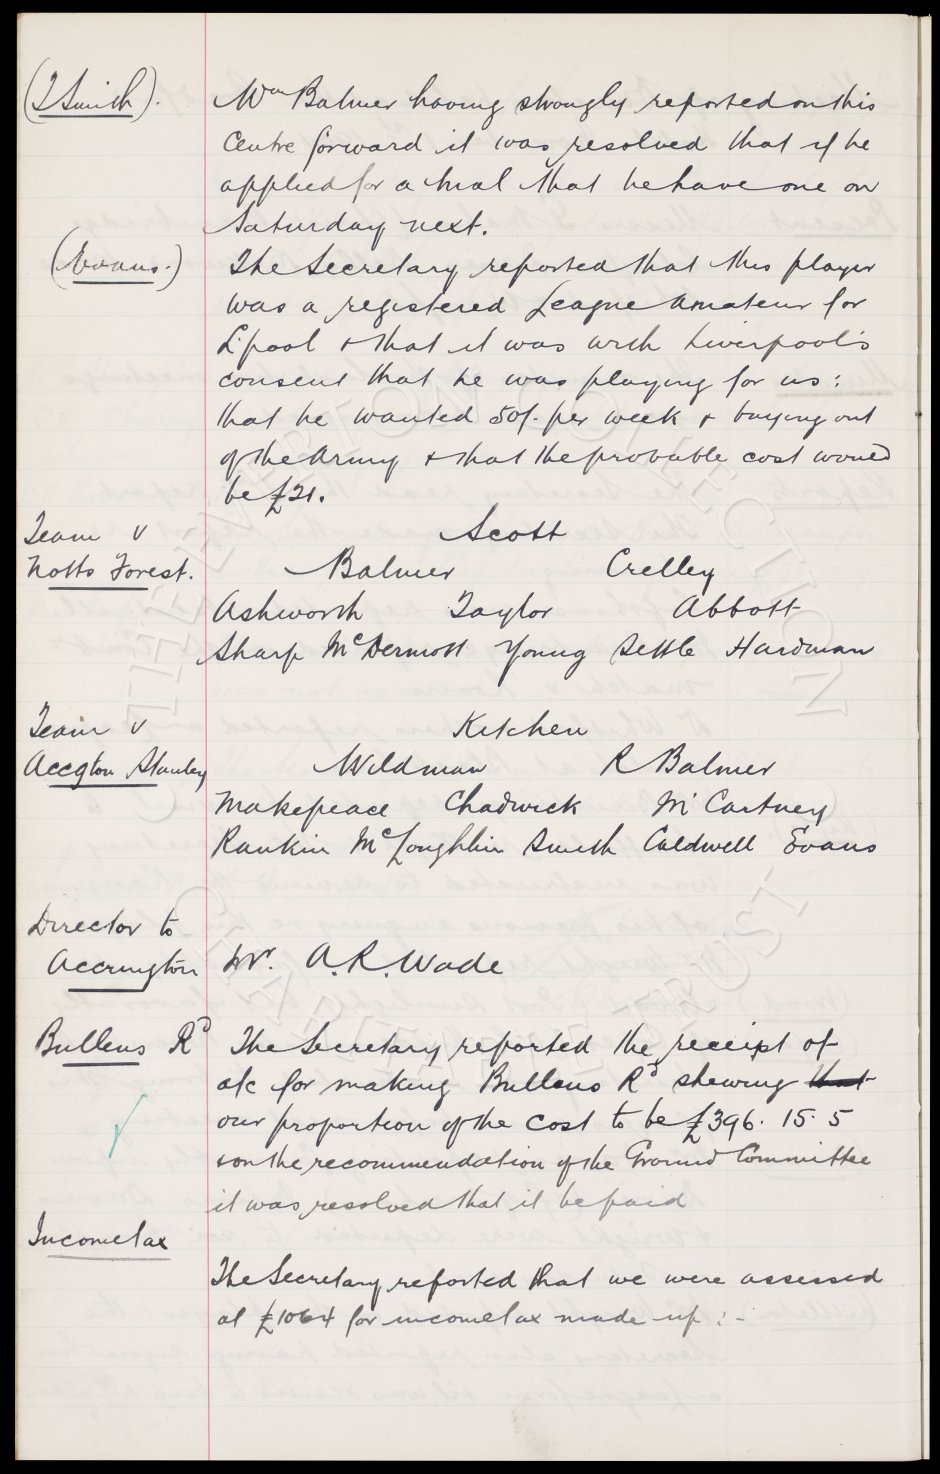 (T Smith). Wm Balmer having strongly reported on this
centre forward it was resolved that if he
applied for a trial that he have one on
Saturday next.
(Evans.) The Secretary reported that this player
was a registered League Amateur for
L'pool & that it was with Liverpool's
consent that he was playing for us:
that he wanted 50/- per week & buying out
of the Army & that the probable cost would
be £21.
Team v Scott
Notts Forest. Balmer Crelley
Ashworth Taylor Abbott
Sharp McDermott Young Settle Hardman
Team v Kitchen
Accgton Stanley Wildman R Balmer
Makepeace Chadwick McCartney
Rankin McLoughlin Smith Caldwell Evans
Director to
Accrington Dr. A. R. Wade
Bullens Rd The Secretary reported the receipt of
a/c for making Bullens Rd shewing that
our proportion of the cost to be £396. 15. 5
& on the recommendation of the Ground Committee
it was resolved that it be paid
Incometax
The Secretary reported that we were assessed
at £1064 for incometax made up :-
THE EVERTON COLLECTION
CHARITABLE TRUST